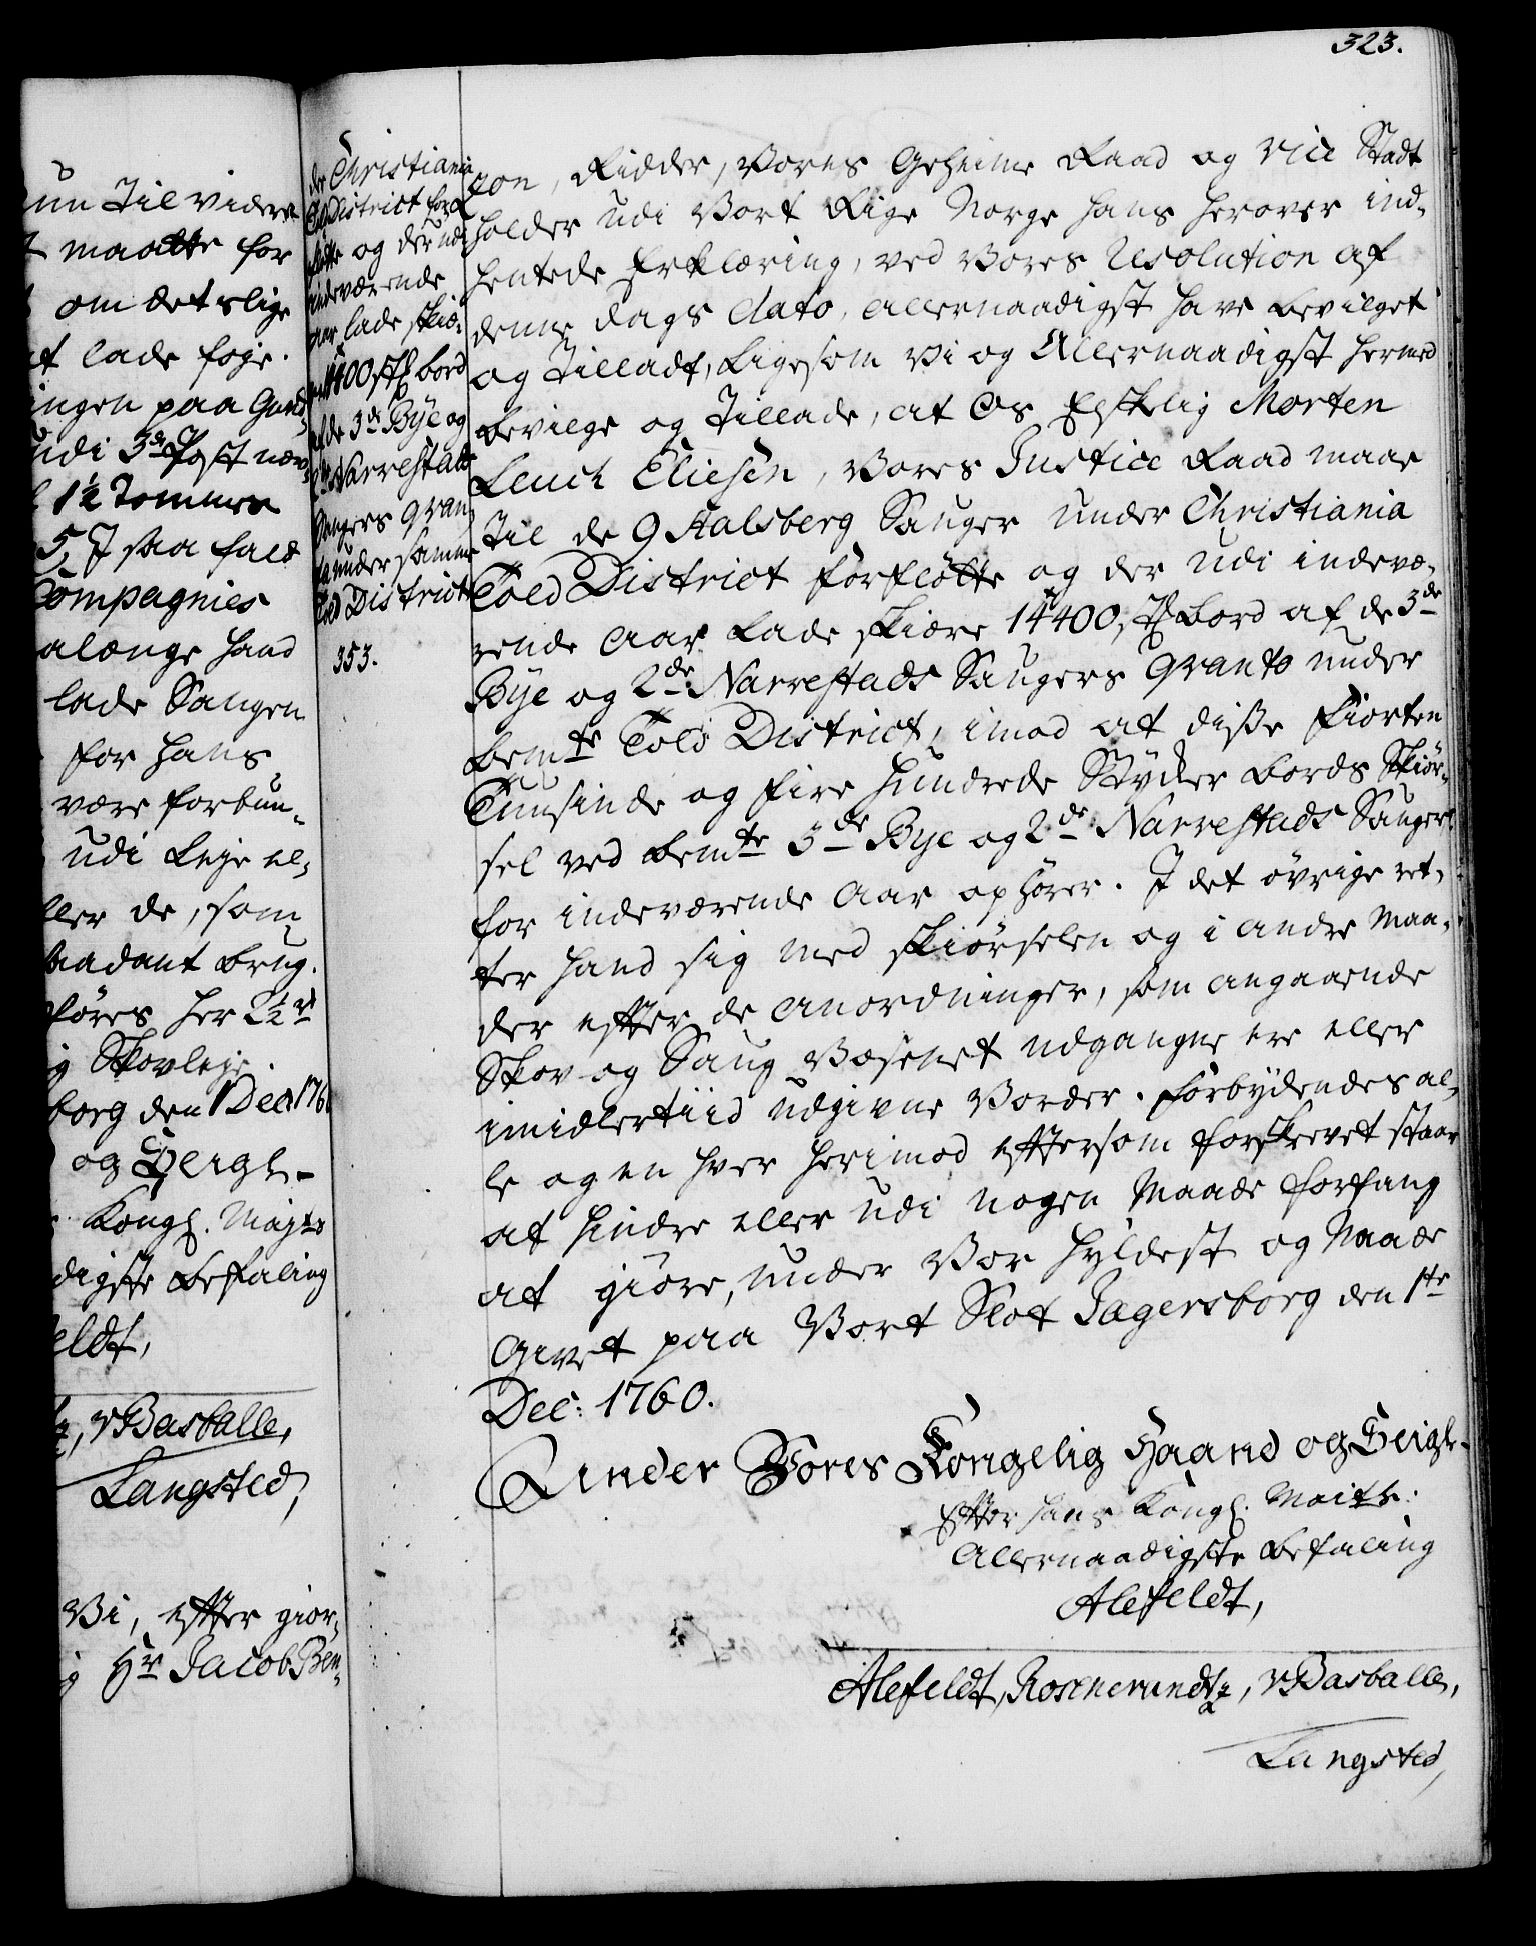 323.
un Til videre
maatte for
om det slige
lade føye.
ingen paa Gund,
udi 3de Post næv,
1½ Tommer
5, I saa fald
Compagnies
alænge hand
lade Saugen
for hans
være forbun,
udi Leje el,
ller de, som
aadant brug.
føres her 2½ rd
Skovleje.
borg den 1 Dec: 176
og Seigl.
Kongl. Mayts
digste Befaling
eldt,
, vBasballe,
Langsted,
Vi, efter gior,
Hr Jacob Ben,
Christiania
District for
og der udi
indeværende
aar lade skiæ,
14400 st bord
de 3de Bye og
Narrestads
Saugers Qvan,
under samme
Told District
353.
zon, Ridder, Vores Geheime Raad og Vice Stadt
holder udi Vort Rige Norge hans herover ind,
hentede Erklæring, ved Vores Resolution af
denne dags dato, allernaadigst have bevilget
og Tilladt, Ligesom Vi og Allernaadigst hermed
bevilge og Tillade, at Os Elskelig Morten
Leuch Eliesen, Vores Justice Raad maae
Til de 9 Aalsberg Sauger under Christiania
Told District forfløtte og der udi indevæ,
rende Aar Lade skiære 14400 st Bord af de 3de
Bye og 2de Narrestads Saugers Qvanta under
bemte Told District, imod at disse Fiorten
Tuusinde og Fire Hundrede Stykker Bords Skiør,
sel ved bemte 3de Bye og 2de Narrestads Sauger
for indeværende Aar ophører. I det øvrige ret,
ter hand sig med skiørselen og i andre Maa,
der efter de Anordninger, som angaaende
Skov og Saug Væsenet udgangne ere eller
imidlertiid udgivne Vorder. Forbydendes al,
le og en hver herimod eftersom forskrevet staar
at hindre eller udi nogen Maade forfang
at giøre, under Vor Hyldest og Naade
Givet paa Vort Slot Jagersborg den 1ste
Dec: 1760.
Under Vores Kongelig Haand og Seigl.
Efter Hans Kongl. Maits:
Allernaadigste Befaling
Alefeldt,
Alefeldt, Rosencrundtz, vBasballe,
Langsted,